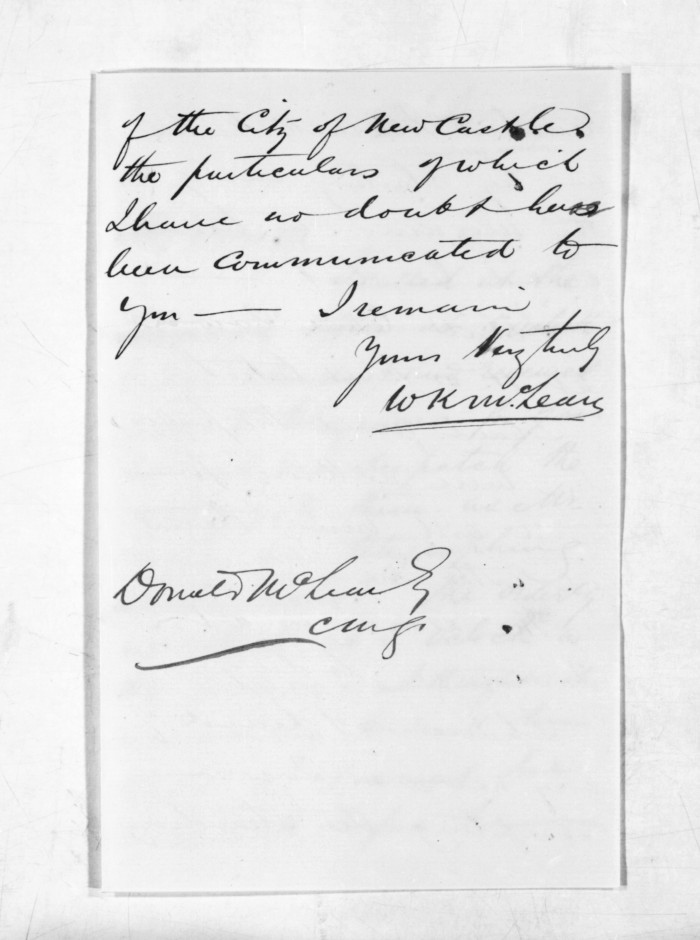 of the City of New Castle
the particulars of which
I have no doubt has
been communicated to
you — I remain
Yours Very truly
W K McLean
Donald McLean Esq